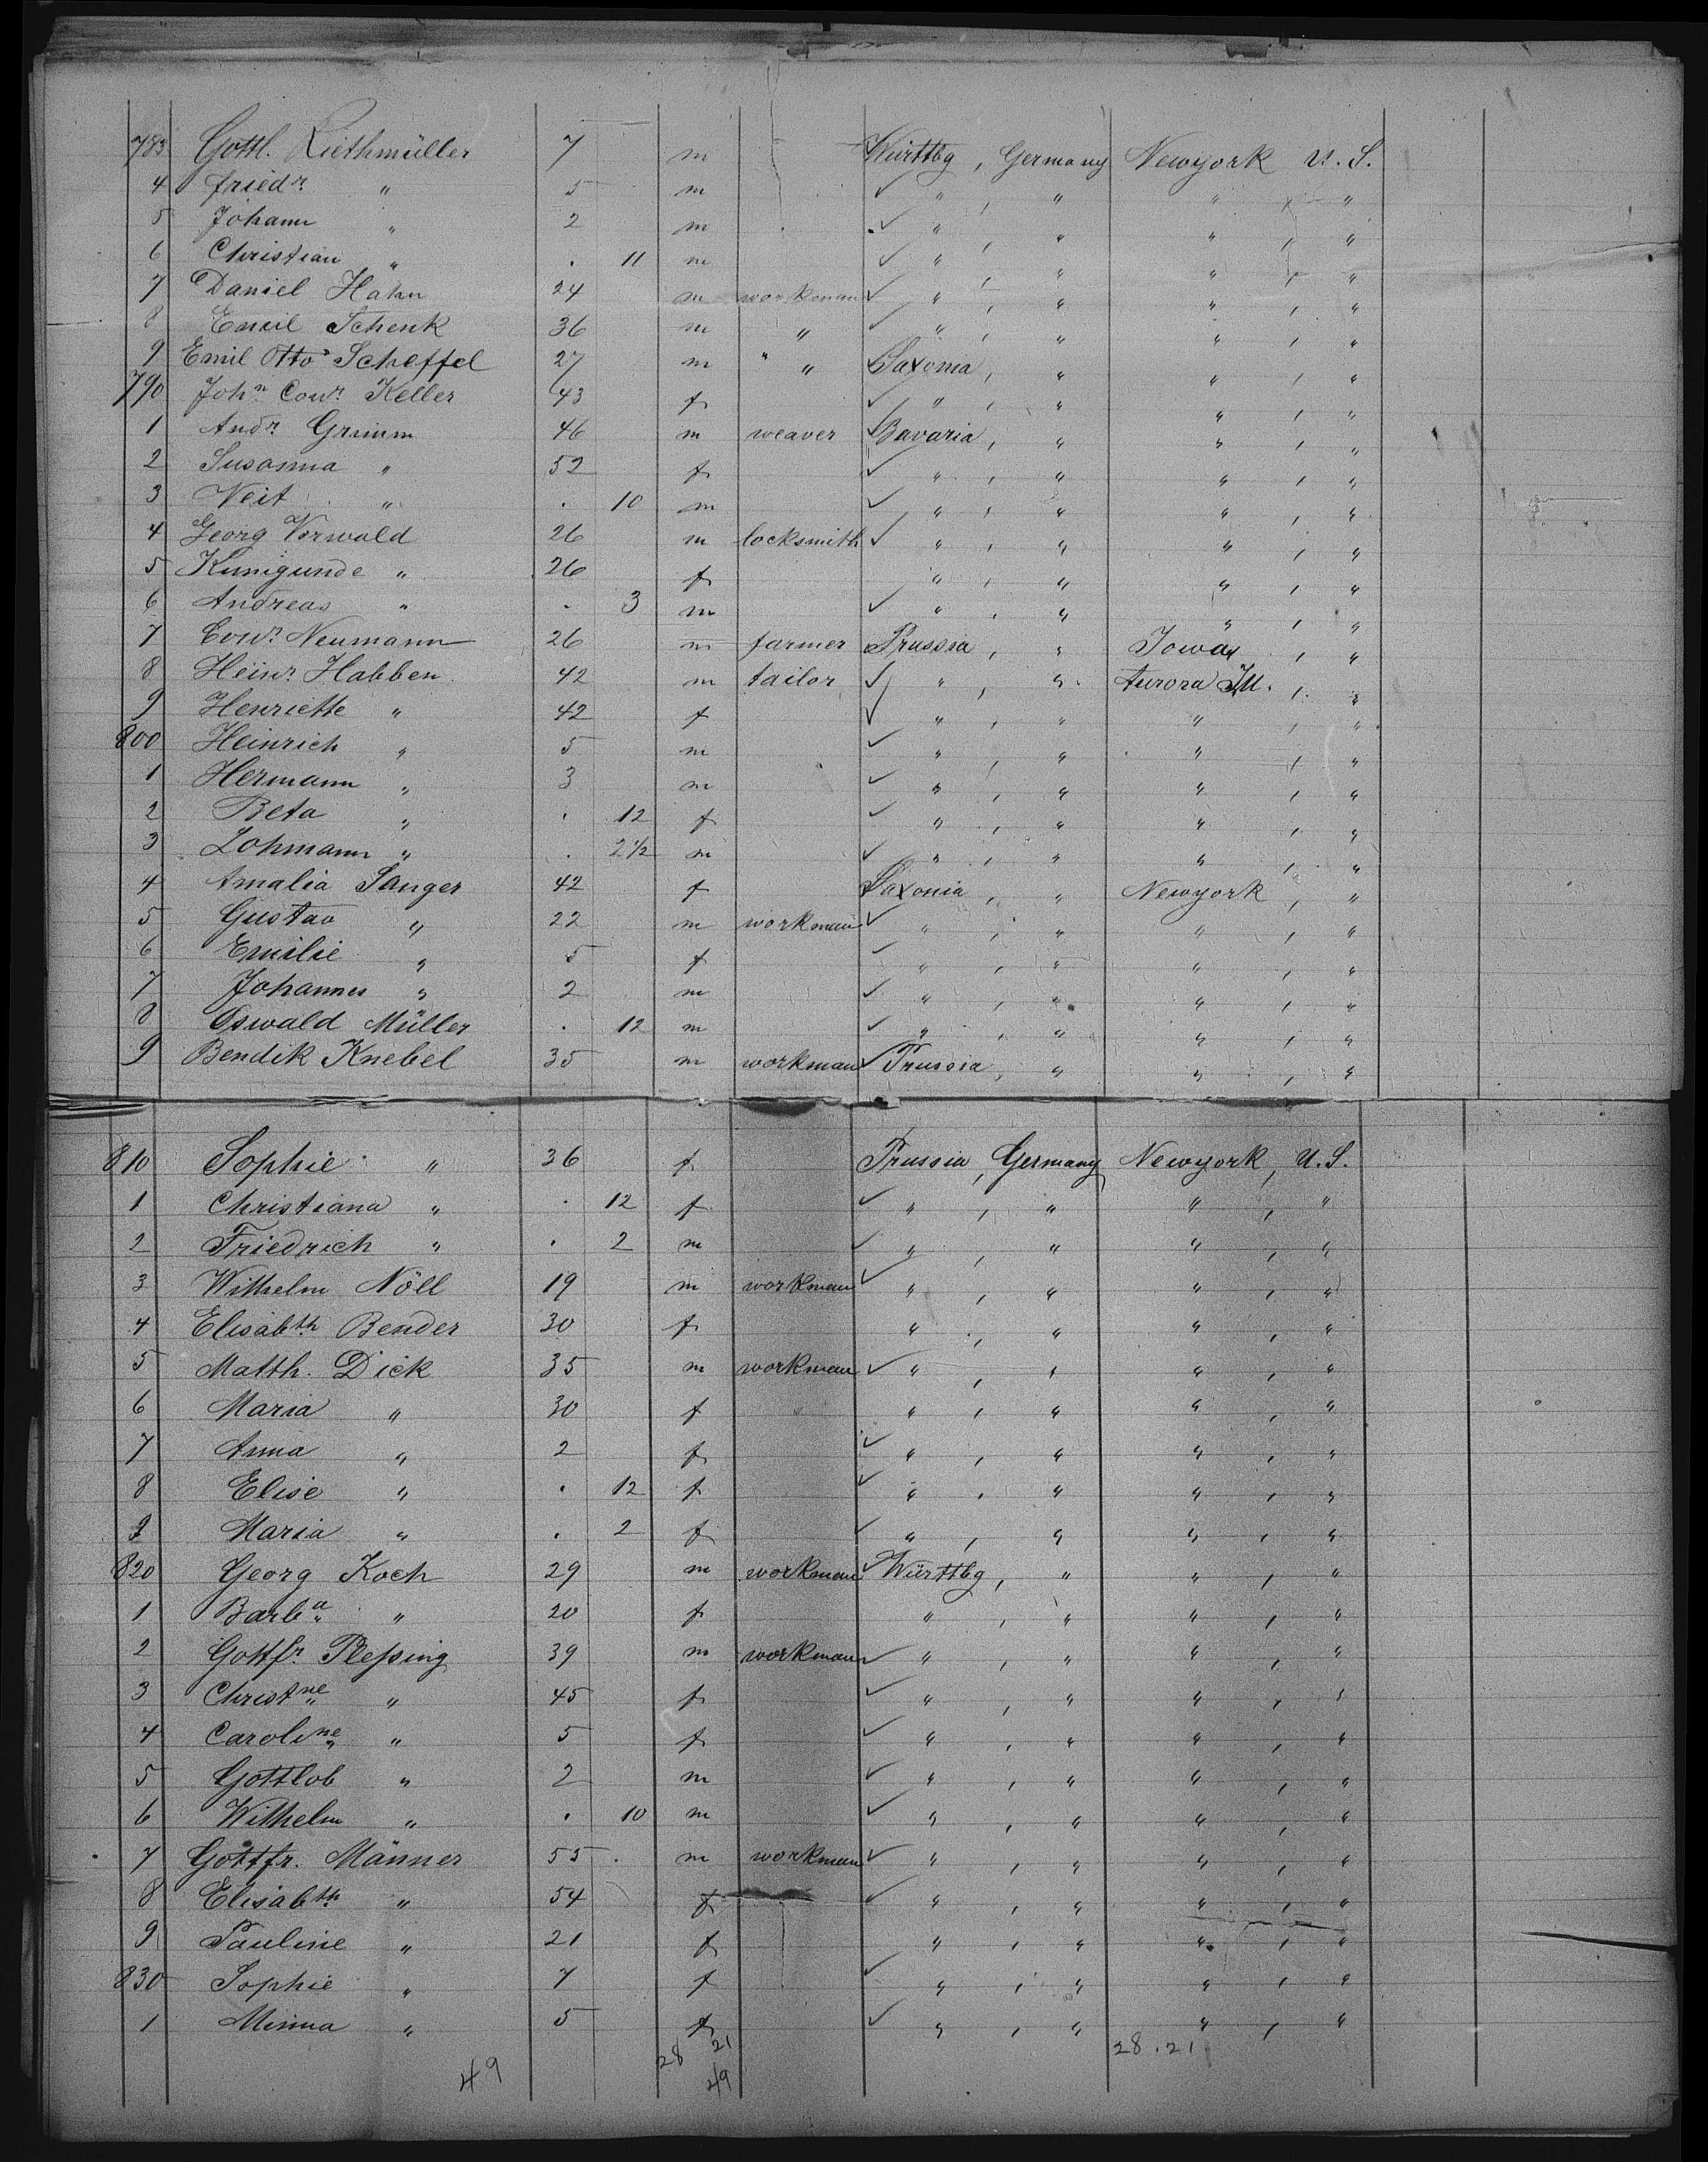 783 Gottl. Riethmüller 7 m Württbg, Germany Newyork U. S.
4 friedr " 5 m " , " " , "
5 Johann " 2 m " , " " , "
6 Christian " . 11 m " , " " , "
7 Daniel Hahn 24 m workman " , " " , "
8 Emil Schenk 36 m " " , " " , "
9 Emil Otto Scheffel 27 m " Saxonia, " " , "
790 John Conr Keller 43 f " , " " , "
1 Andr Grimm 46 m weaver Bavaria, " " , "
2 Susanna " 52 f " , " " , "
3 Veit " . 10 m " , " " , "
4 Georg Vorwald 26 m locksmith " , " " , "
5 Kunigunde " 26 f " , " " , "
6 Andreas " . 3 m " , " " , "
7 Conr Neumann 26 m farmer Prussia, " Iowa , "
8 Heinr Habben 42 m tailor " , " Aurora Ill. , "
9 Henriette " 42 f " , " " , "
800 Heinrich " 5 m " , " " , "
1 Hermann " 3 m " , " " , "
2 Beta " . 12 f " , " " , "
3 Lohmann " . 2½ m " , " " , "
4 Amalia Sanger 42 f Saxonia, " Newyork, "
5 Gustav " 22 m workman " , " " , "
6 Emilie " 5 f " , " " , "
7 Johannes " 2 m " , " " , "
8 Oswald Müller . 12 m " , " " , "
9 Bendik Knebel 35 m workman Prussia, " " , "
810 Sophie " 36 f Prussia, Germany Newyork, U.S.
1 Christiana " . 12 f " , " " , "
2 Friedrich " . 2 m " , " " , "
3 Wilhelm Nöll 19 m workman " , " " , "
4 Elisabth Bender 30 f " , " " , "
5 Matth. Dick 35 m workman " , " " , "
6 Maria " 30 f " , " " , "
7 Anna " 2 f " , " " , "
8 Elise " . 12 f " , " " , "
9 Maria " . 2 f " , " " , "
820 Georg Koch 29 m workman Württbg, " " , "
1 Barba " 20 f " , " " , "
2 Gottfr Pleßing 39 m workman " , " " , "
3 Christne " 45 f " , " " , "
4 Caroline " 5 f " , " " , "
5 Gottlob " 2 m " , " " , "
6 Wilhelm " . 10 m " , " " , "
7 Gottfr. Männer 55 m workman " , " " , "
8 Elisabth " 54 f " , " " , "
9 Pauline " 21 f " , " " , "
830 Sophie " 7 f " , " " , "
1 Minna " 5 f " , " " , "
28 21 28.21
49 49